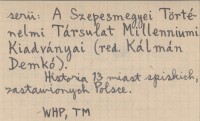 serii: A Szepesmegyei Törté-
nelmi Társulat Millenniumi
Kiadványai (red. Kálmán
Demkó).
Historia 13 miast spiskich,
zastawionych Polsce.
WHP, TM